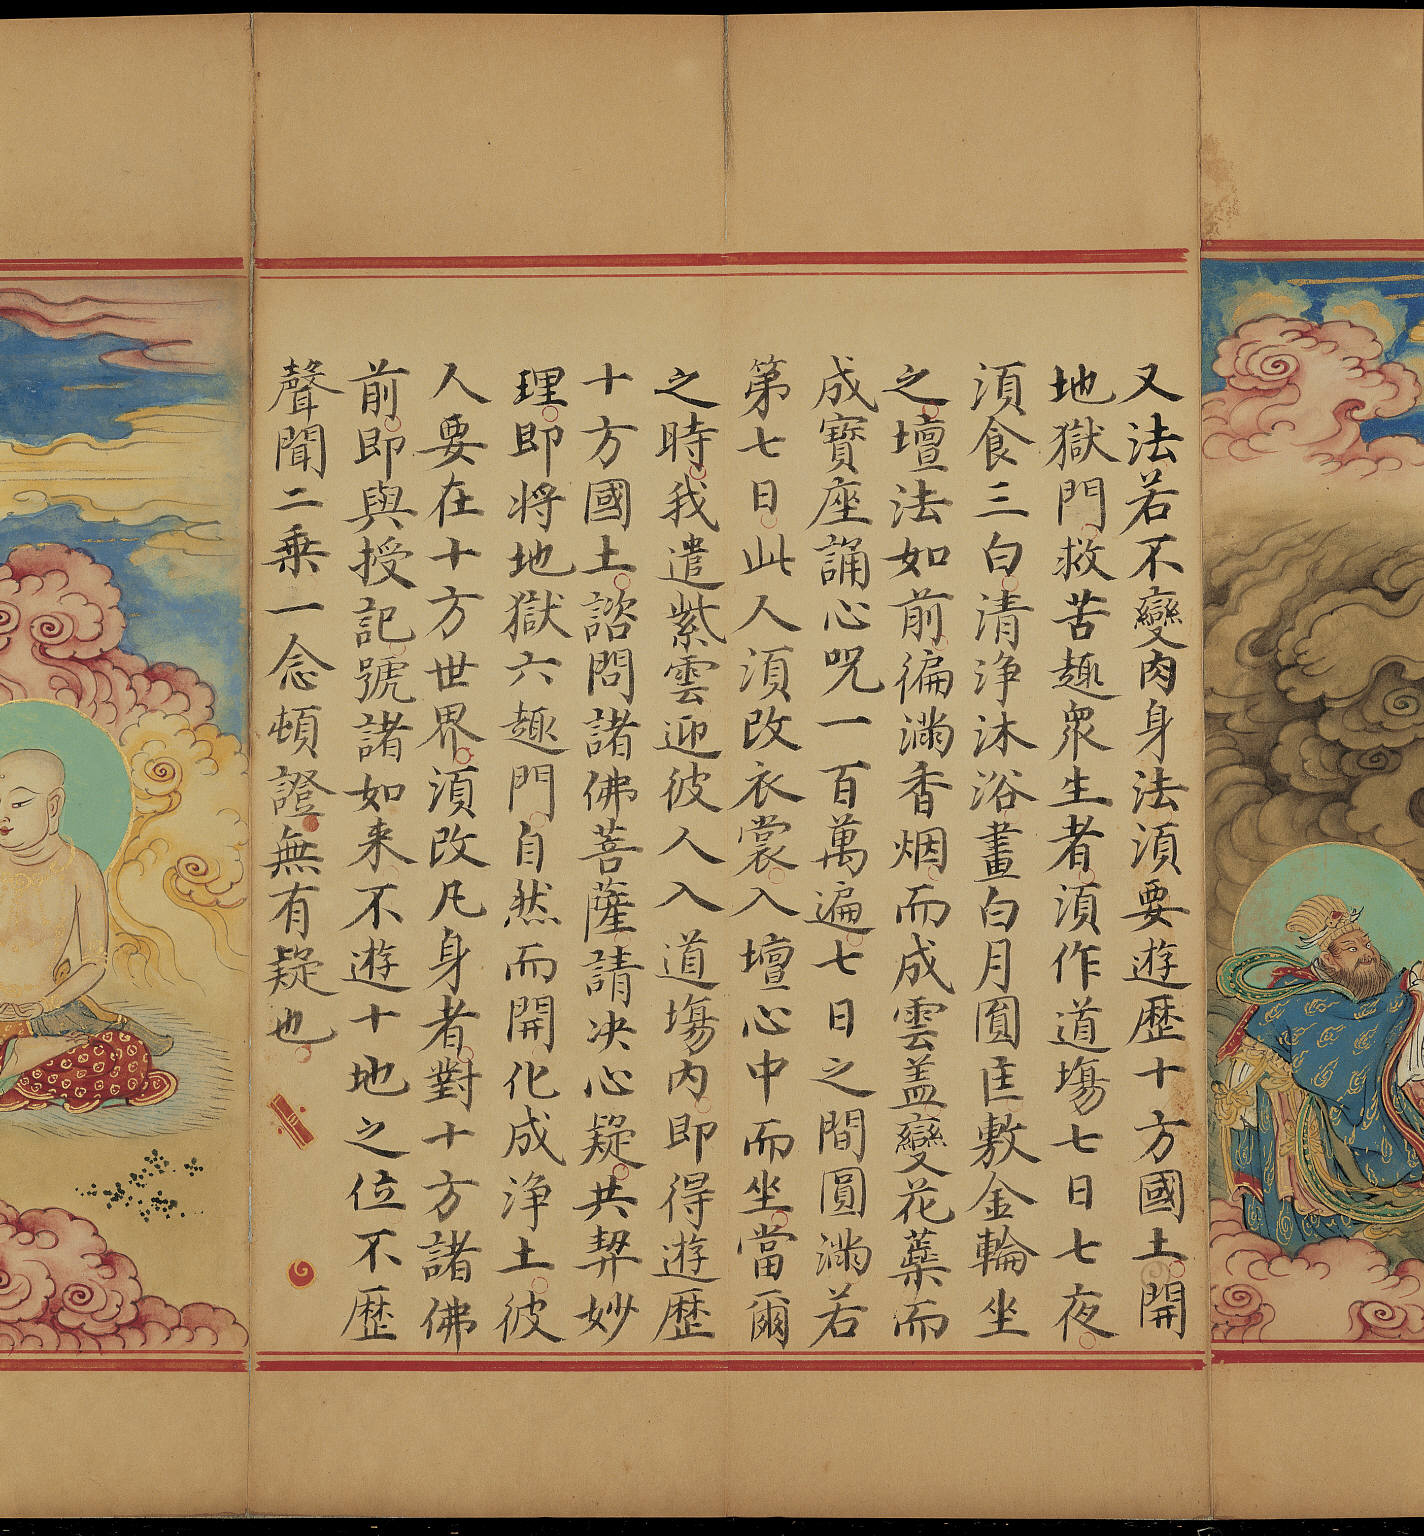 又法若不變肉身法湏要遊歷十方國土開
地獄門救苦趣衆生者湏作道場七日七夜
湏食三白清淨沐浴畫白月圓匡敷金輪坐
之壇法如前徧滿香烟而成雲盖變花蘂而
成寶座誦心呪一百萬遍七日之間圓滿若
第七日此人湏改衣裳入壇心中而坐當爾
之時我遣紫雲迎彼人入道塲内即得遊歷
十方國土諮問諸佛菩薩請决心疑共契妙
理即将地獄六趣門自然而開化成淨土彼
人要在十方世界湏改凡身者對十方諸佛
前即與授記號諸如来不遊十地之位不歷
聲聞二乗一念頓證無有疑也